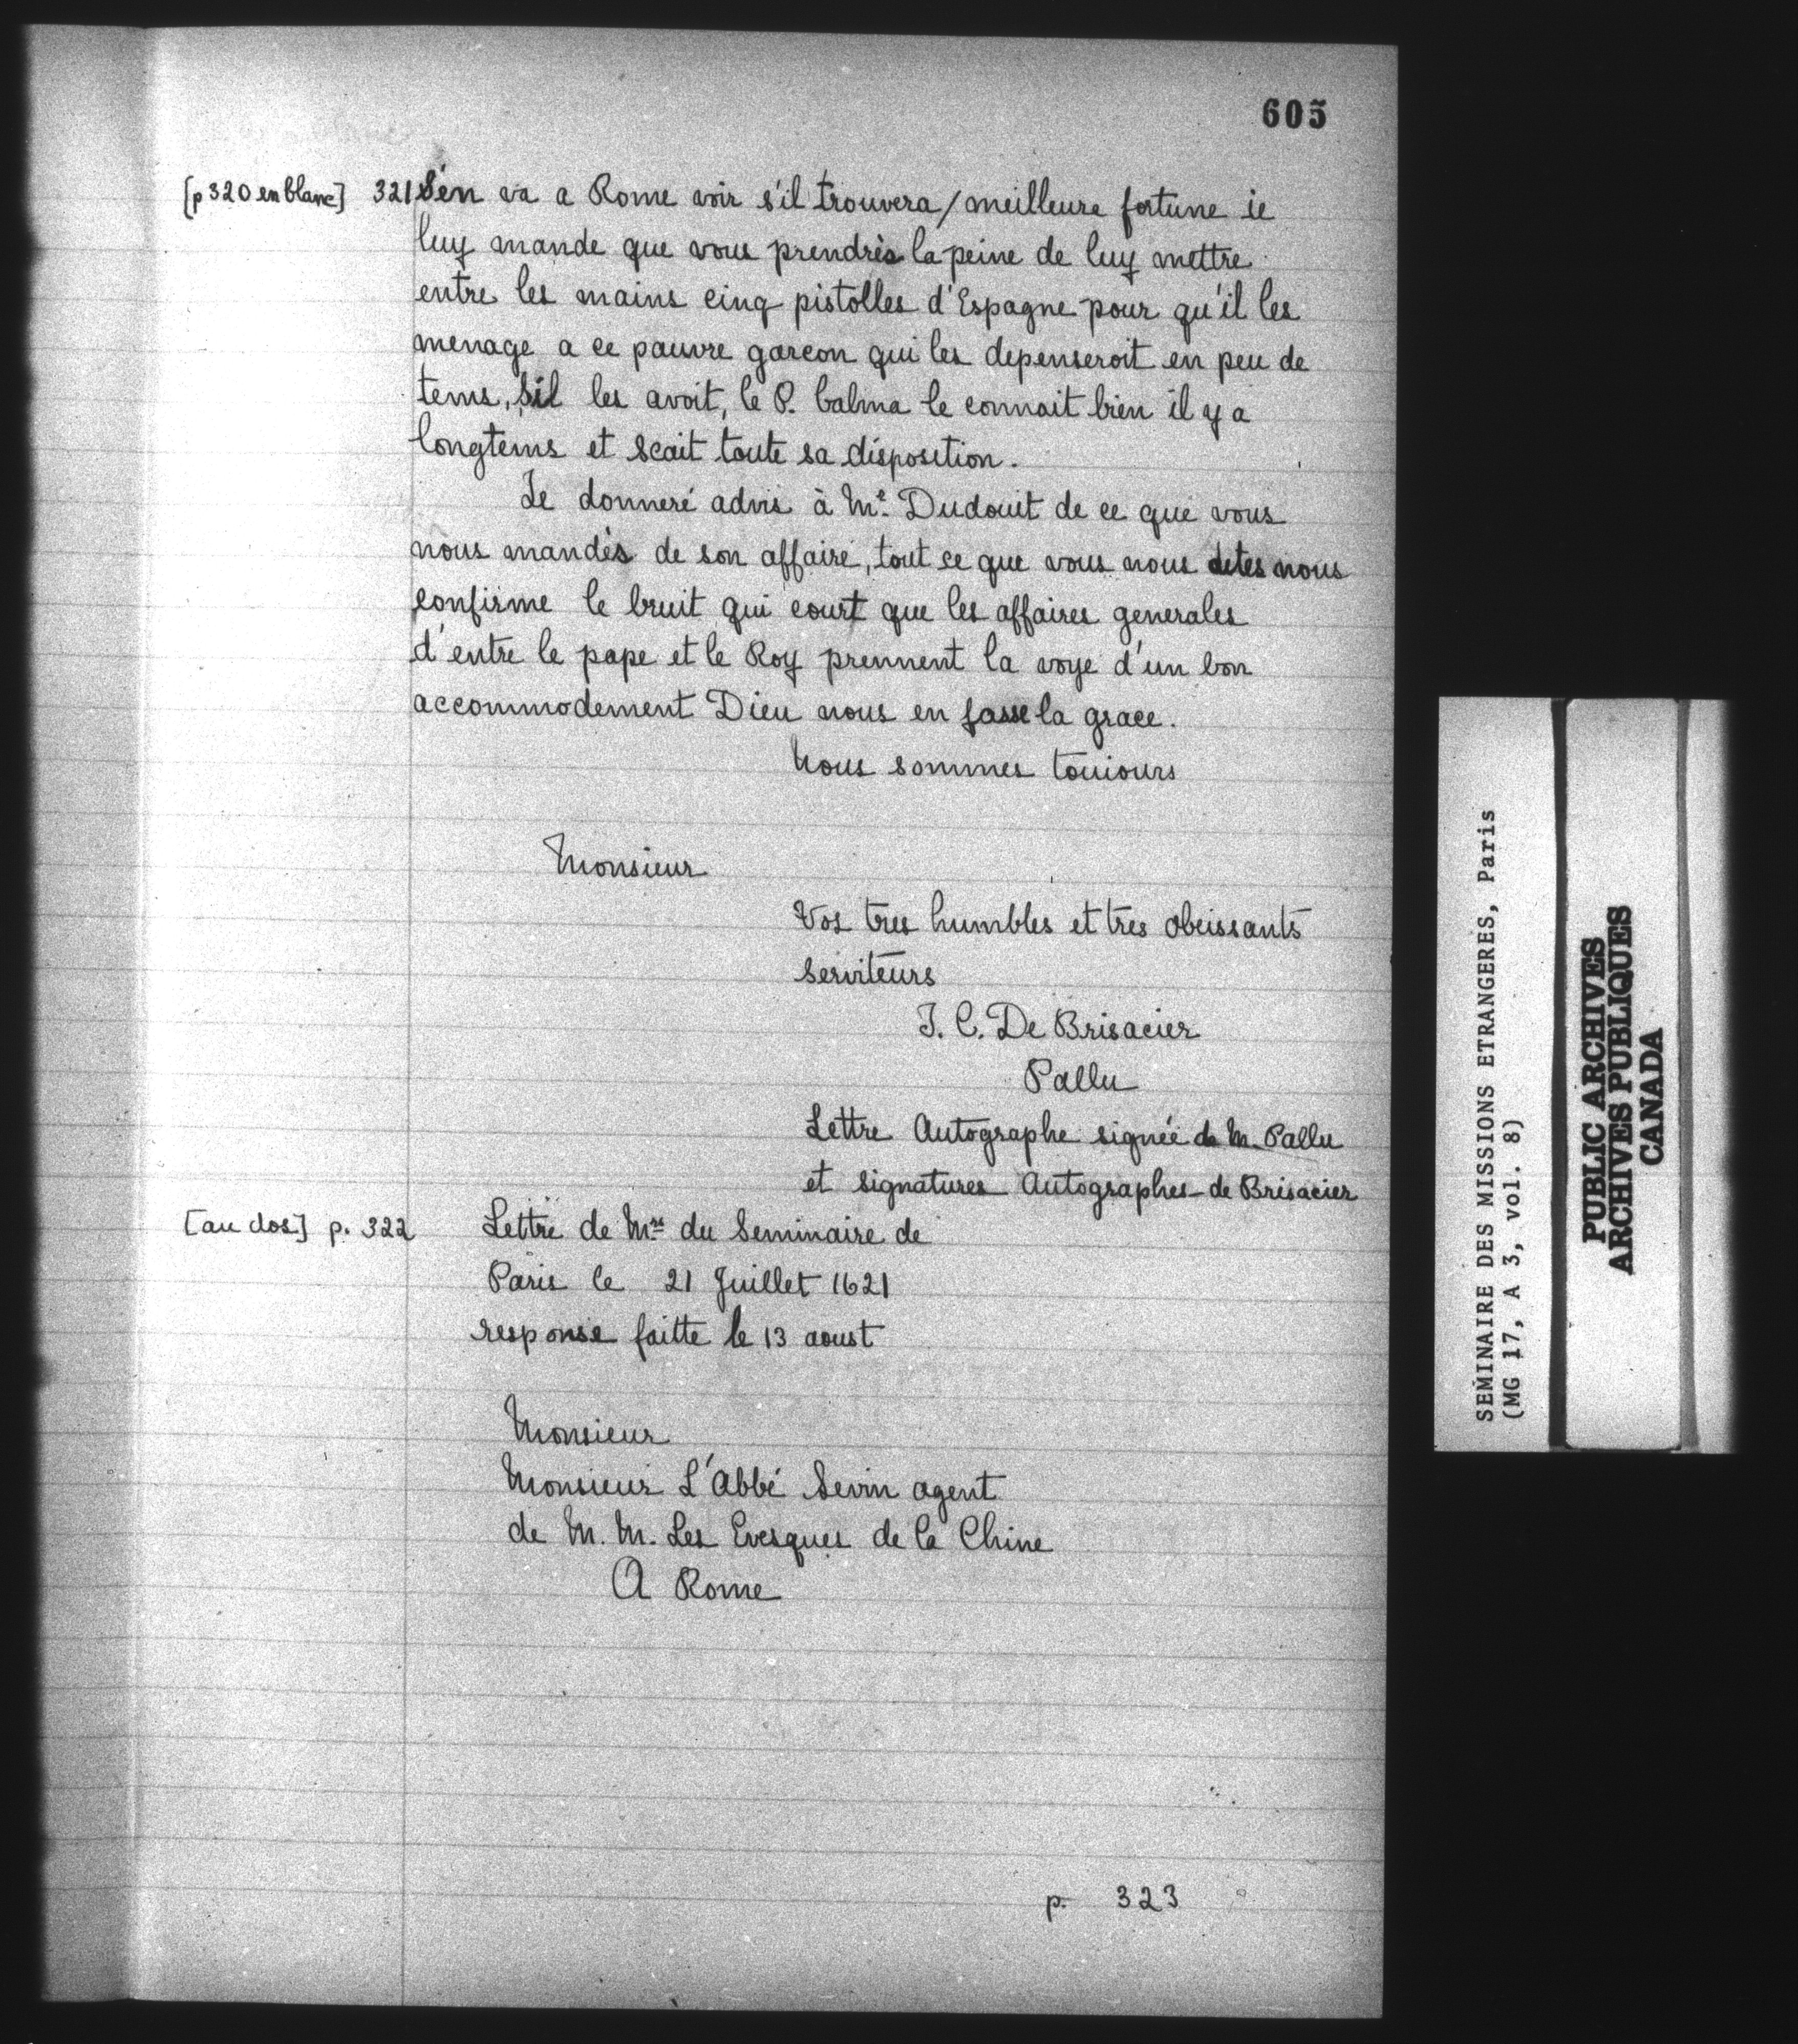 605
[p 320 en blanc] 321 S'en va a Rome voir s'il trouvera/meilleure fortune ie
luy mande que vous prendrès la peine de luy mettre
entre les mains cinq pistolles d'Espagne pour qu'il les
menage a ce pauvre garcon qui les depenseroit en peu de
tems, sil les avoit, le P. Calma le connait bien il y a
longtems et scait toute sa disposition.
Je donneré advis à Mr. Dudouit de ce que vous
nous mandès de son affaire, tout ce que vous nous dites nous
confirme le bruit qui court que les affaires generales
d'entre le pape et le Roy prennent la voye d'un bon
accommodement Dieu nous en fasse la grace.
Nous sommes touiours
Monsieur
Vos tres humbles et tres obeissants
serviteurs
J. C. De Brisacier
Pallu
Lettre Autographe signée de M. Pallu
et signatures Autographes de Brisacier
[au dos] p. 322 Lettre de Mrs du Seminaire de
Paris le 21 Juillet 1621
response faitte le 13 aoust
Monsieur
Monsieur L'Abbé Sevin agent
de M. M. Les Evesques de la Chine
A Rome
p. 323
SEMINAIRE DES MISSIONS ETRANGERES, Paris
(MG 17, A 3, vol. 8)
PUBLIC ARCHIVES
ARCHIVES PUBLIQUES
CANADA